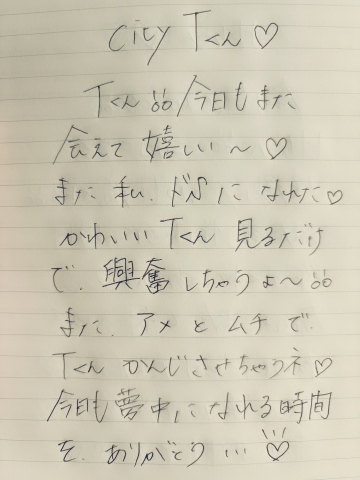 City Tくん♡
Tくん!!今日もまた
会えて嬉しい〜♡
また私、ドSになれた♡
かわいいTくん見るだけ
で、興奮しちゃうよ〜!!
また、アメとムチで、
Tくんかんじさせちゃうネ♡
今日も夢中になれる時間
を、ありがとう…♡